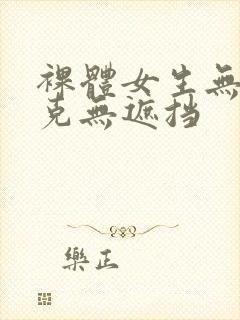 裸體女生無
克無遮挡
樂正